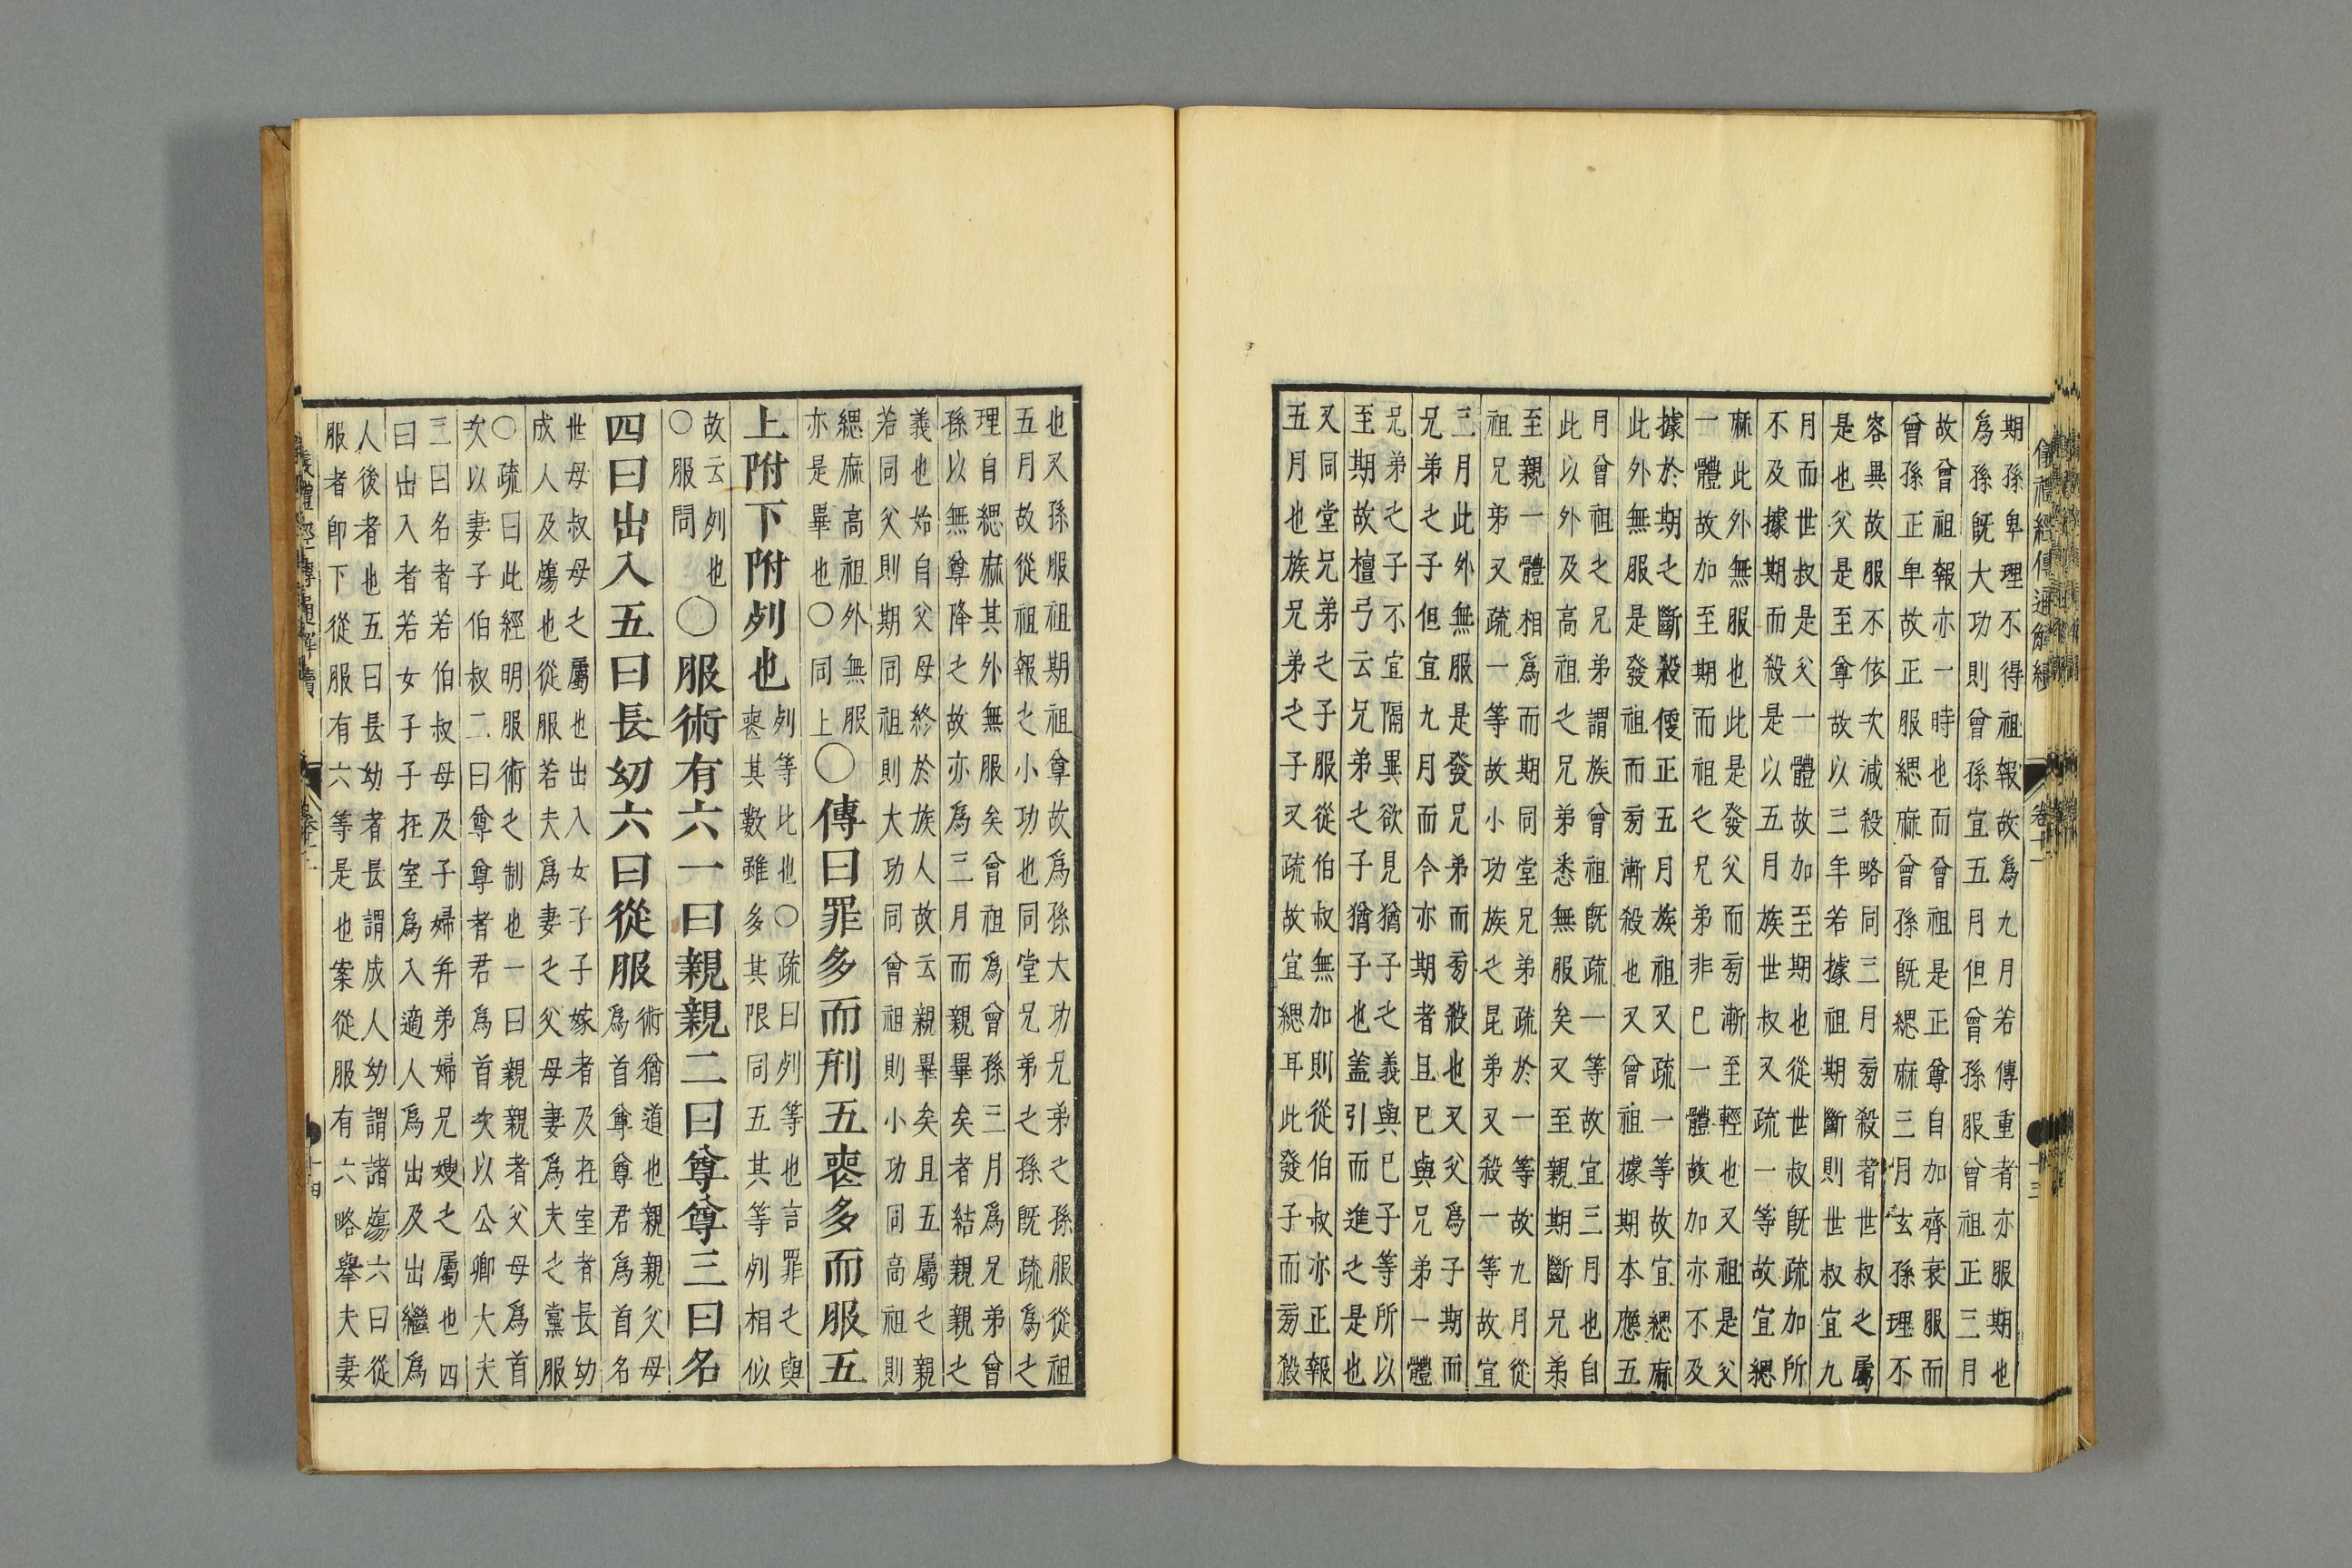 期孫卑理不得祖報故爲九月若傳重者亦服期也
爲孫既大功則曾孫宜五月但曾孫服曾祖正三月
故曾祖報亦一時也而曾祖是正尊自加齊衰服而
曾孫正卑故正服緦麻曾孫既緦麻三月玄孫理不
容異故服不依次減殺略同三月旁殺者世叔之屬
是也父是至尊故以三年若據祖期斷則世叔宜九
月而世叔是父一體故加至期也從世叔既疏加所
不及據期而殺是以五月族世叔又疏一等故宜緦
麻此外無服也此是發父而旁漸至輕也又祖是父
一體故加至期而祖之兄弟非已一體故加亦不及
據於期之斷殺便正五月族祖又疏一等故宜緦麻
此外無服是發祖而旁漸殺也又曾祖據期本應五
月曾祖之兄弟謂族曾祖既疏一等故宜三月也自
此以外及高祖之兄弟悉無服矣又至親期斷兄弟
至親一體相爲而期同堂兄弟疏於一等故九月從
祖兄弟又疏一等故小功族之昆弟又殺一等故宜
三月此外無服是發兄弟而旁殺也又父爲子期而
兄弟之子但宜九月而今亦期者且已與兄弟一體
兄弟之子不宜隔異欲見猶子之義與已子等所以
至期故檀弓云兄弟之子猶子也蓋引而進之是也
又同堂兄弟之子服從伯叔無加則從伯叔亦正報
五月也族兄弟之子又疏故宜緦耳此發子而旁殺
也又孫服祖期祖尊故爲孫大功兄弟之孫服從祖
五月故從祖報之小功也同堂兄弟之孫既疏爲之
理自緦麻其外無服矣曾祖爲曾孫三月爲兄弟曾
孫以無尊降之故亦爲三月而親畢矣者結親親之
義也始自父母終於族人故云親畢矣且五屬之親
若同父則期同祖則大功同曾祖則小功同高祖則
緦麻高祖外無服
亦是畢也○同上
○傳曰罪多而刑五喪多而服五
上附下附列也
列等比也○疏曰列等也言罪之與
喪其數雖多其限同五其等列相似
故云列也
○服問
○服術有六一曰親親二曰尊尊三曰名
四曰出入五曰長幼六曰從服
術猶道也親親父母
爲首尊尊君爲首名
世母叔母之屬也出入女子子嫁者及在室者長幼
成人及殤也從服若夫爲妻之父母妻爲夫之黨服
○疏曰此經明服術之制也一曰親親者父母爲首
次以妻子伯叔二曰尊尊者君爲首次以公卿大夫
三曰名者若伯叔母及子婦并弟婦兄嫂之屬也四
曰出入者若女子子在室爲入適人爲出及出繼爲
人後者也五曰長幼者長謂成人幼謂諸殤六曰從
服者即下從服有六等是也案從服有六略舉夫妻